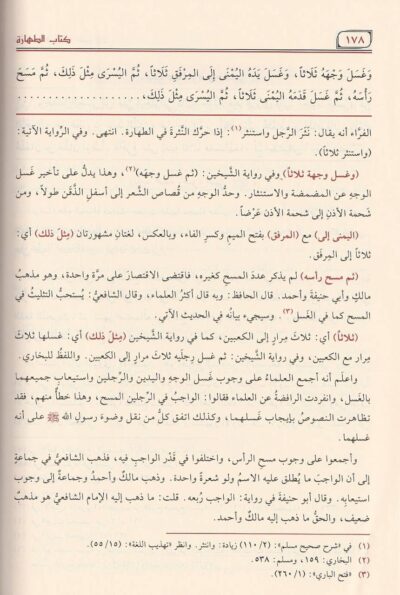 ١٧٨
كتاب الطهارة
وَغَسَلَ وَجْهَهُ ثَلَاثاً، وَغَسَلَ يَدَهُ اليُمْنَى إِلَى المِرْفَقِ ثَلَاثاً، ثُمَّ اليُسْرَى مِثْلَ ذَلِكَ، ثُمَّ مَسَحَ
رَأْسَهُ، ثُمَّ غَسَلَ قَدَمَهُ اليُمْنَى ثَلَاثاً، ثُمَّ اليُسْرَى مِثْلَ ذَلِكَ، ......................
الفرَّاء أنه يقال: نَثَرَ الرَّجل واستنثر(١): إذا حرَّك النَّثرةَ في الطهارة. انتهى. وفي الرِّواية الآتية:
(واستنثر ثلاثاً).
(وغسل وجهة ثلاثاً) وفي رواية الشَّيخين: (ثم غسل وجهَه)(٢)، وهذا يدلُّ على تأخير غَسل
الوجه عن المضمضة والاستنثار. وحدُّ الوجهِ من قُصاص الشَّعر إلى أسفلِ الذَّقَن طولاً، ومن
شحمة الأذن إلى شحمة الأذن عَرْضاً.
(اليمنى إلى) مع (المرفق) بفتح الميم وكسرِ الفاء، وبالعكس، لغتانِ مشهورتان (مِثلَ ذلك) أي:
ثلاثاً إلى المِرفق.
(ثم مسح رأسه) لم يذكر عددَ المسح كغيره، فاقتضى الاقتصارَ على مرَّة واحدة، وهو مذهبُ
مالكٍ وأبي حنيفةَ وأحمد. قال الحافظ: وبه قال أكثرُ العلماء، وقال الشافعيُّ: يُستحبُّ التثليثُ في
المسح كما في الغَسل(٣). وسيجيء بيانُه في الحديث الآتي.
(ثلاثاً) أي: ثلاثَ مِرارٍ إلى الكعبين، كما في رواية الشَّيخين (مِثلَ ذلك) أي: غسلها ثلاثَ
مِرار مع الكعبين، وفي رواية الشَّيخين: ثم غسل رجلَيه ثلاثَ مرارٍ إلى الكعبين. واللفظُ للبخاري.
واعلَم أنه أجمع العلماءُ على وجوب غَسل الوجهِ واليدين والرِّجلين واستيعابِ جميعهما
بالغَسل، وانفردت الرافضةُ عن العلماء فقالوا: الواجبُ في الرِّجلين المسح، وهذا خطأٌ منهم، فقد
تظاهرت النصوصُ بإيجاب غَسلهما، وكذلك اتفق كلُّ من نقل وضوءَ رسولِ الله ﷺ على أنه
غسلهما.
وأجمعوا على وجوب مسحِ الرأس، واختلفوا في قَدْر الواجبِ فيه، فذهب الشافعيُّ في جماعةٍ
إلى أن الواجبَ ما يُطلق عليه الاسمُ ولو شعرةً واحدة. وذهب مالكٌ وأحمدُ وجماعةٌ إلى وجوب
استيعابِه. وقال أبو حنيفةَ في رواية: الواجب رُبعه. قلت: ما ذهب إليه الإمام الشافعيُّ هو مذهبٌ
ضعيف، والحقُّ ما ذهب إليه مالكٌ وأحمد.
(١) في «شرح صحيح مسلم»: (١١٠/٢) زيادة: وانتثر. وانظر «تهذيب اللغة»: (٥٥/١٥).
(٢) البخاري: ١٥٩، ومسلم: ٥٣٨.
(٣) «فتح الباري»: (٢٦٠/١).